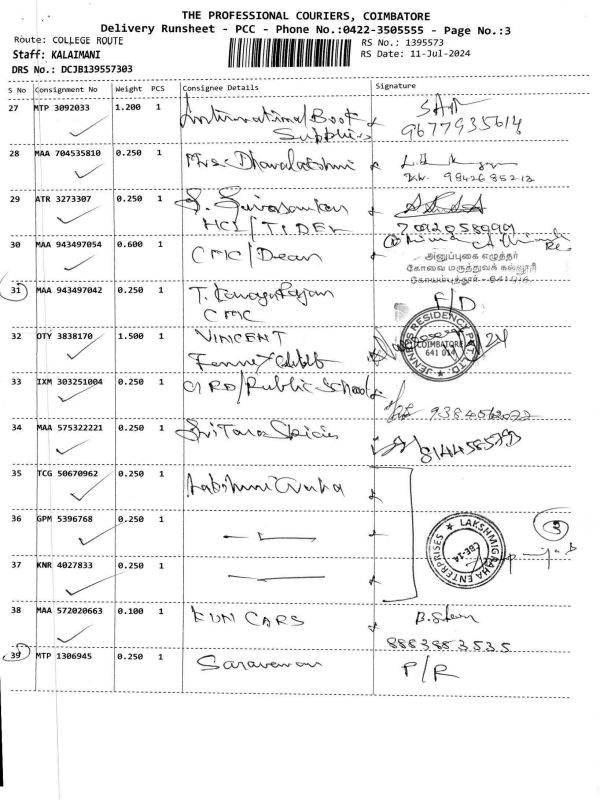 THE PROFESSIONAL COURIERS, COIMBATORE
Delivery Runsheet - PCC - Phone No.:0422-3505555 - Page No.:3
Route: COLLEGE ROUTE
RS No.: 1395573
Staff: KALAIMANI
RS Date: 11-Jul-2024
DRS No.: DCJB139557303
S No Consignment No Weight PCS Consignee Details Signature
27 MTP 3092033 1.200 1 International Book
Suppliers
9677935614
28 MAA 704535810 0.250 1 Mrs. Dhanalakshmi
9842685212
29 ATR 3273307 0.250 1 S. Sivasankar
HCL/TIDEL
30 MAA 943497054 0.600 1 CMC/Dean
அனுப்புகை எழுத்தர்
கோவை மருத்துவக் கல்லூரி
கோயம்புத்தூர் - 641 014
31 MAA 943497042 0.250 1 T. Kanagarajan F/D
CMC
32 OTY 3838170 1.500 1 VINCENT
JENNEYS RESIDENCY PVT. LTD.
COIMBATORE
641 014
33 IXM 303251004 0.250 1 GRD/Public School
34 MAA 575322221 0.250 1 Sri Tara Spices
35 TCG 50670962 0.250 1 Lakshmi Graha
36 GPM 5396768 0.250 1
LAKSHMIGRAHA ENTERPRISES
CBE-14
37 KNR 4027833 0.250 1
38 MAA 572020663 0.100 1 KUN CARS
8883853535
39 MTP 1306945 0.250 1 Saravanan P/R